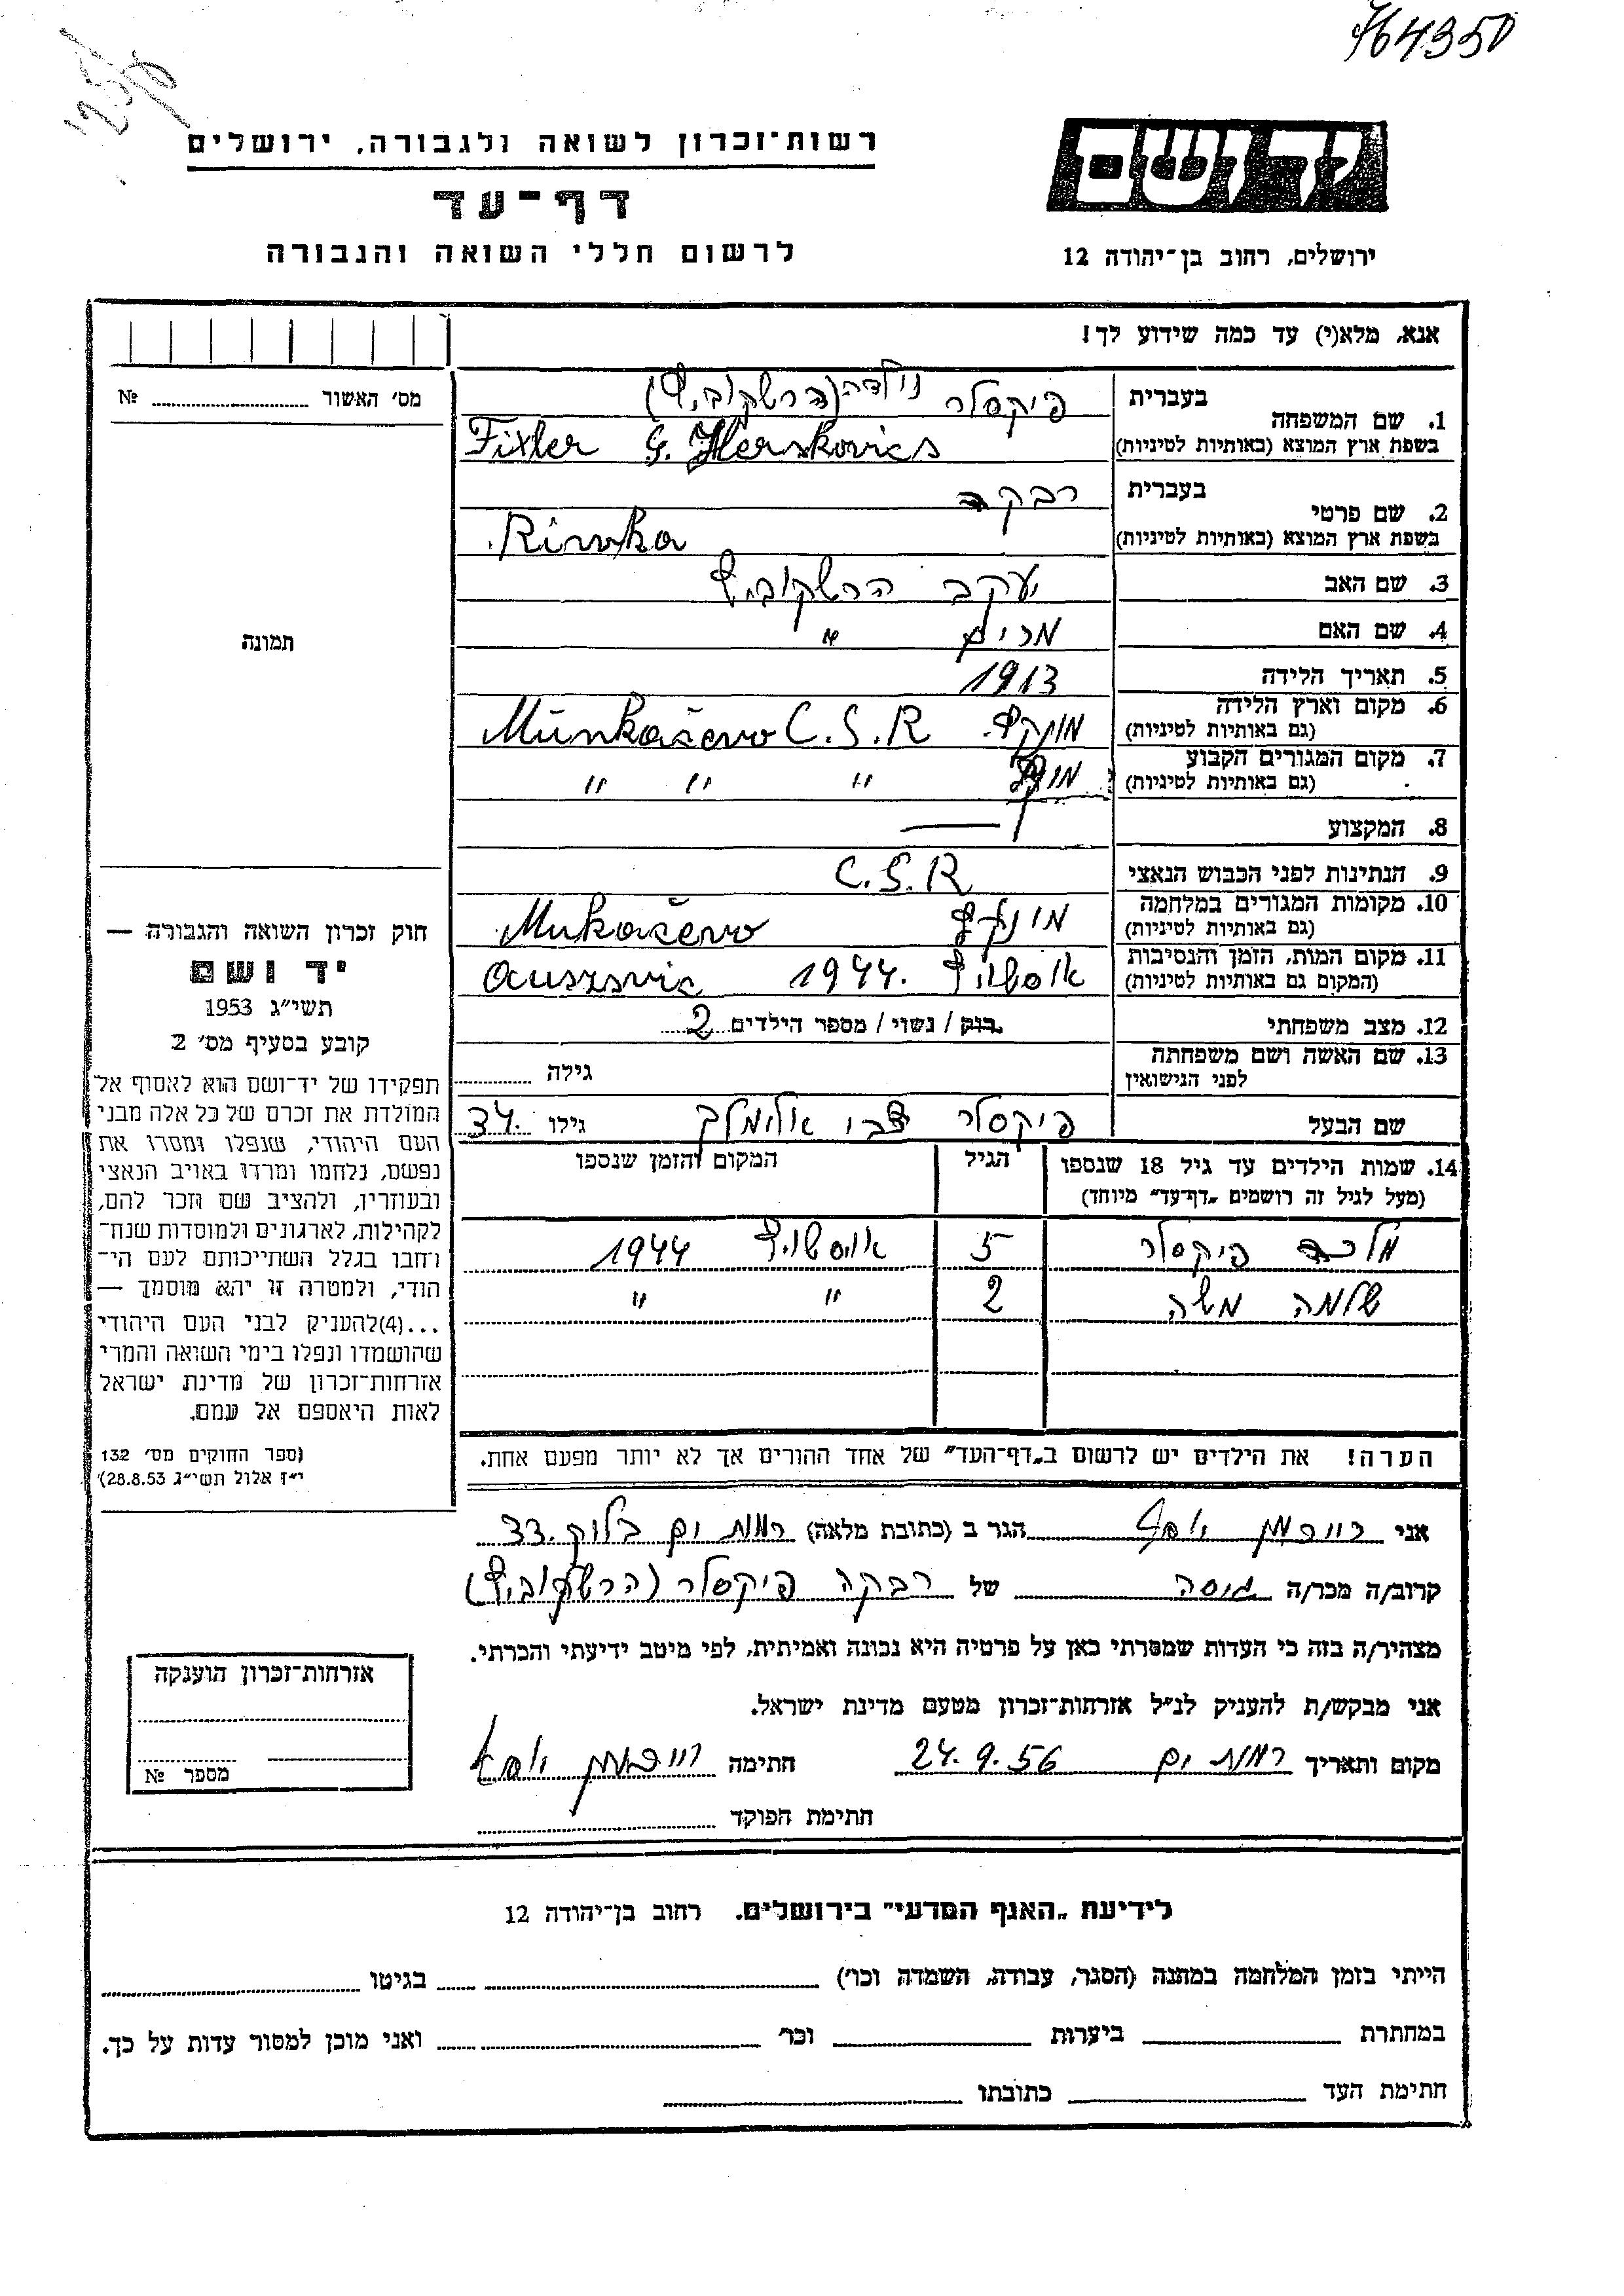 764350
רשות־זכרון לשואה ולגבורה, ירושלים
דף־עד
לרשום חללי השואה והגבורה
יד ושם
ירושלים, רחוב בן־יהודה 12
אנא, מלא(י) עד כמה שידוע לך!
מס׳ האשור № 
1. שם המשפחה בעברית פיקסלר נולדה (הרשקוביץ)
בשפת ארץ המוצא (באותיות לטיניות) Fixler G. Herskovics
2. שם פרטי בעברית רבקה
בשפת ארץ המוצא (באותיות לטיניות) Rivvka
3. שם האב יעקב הרשקוביץ
4. שם האם מרים "
5. תאריך הלידה 1913
6. מקום וארץ הלידה
(גם באותיות לטיניות) מונקץ. Munkačevo C.S.R
7. מקום המגורים הקבוע
(גם באותיות לטיניות) " " "
8. המקצוע —
9. הנתינות לפני הכבוש הנאצי C.S.R
10. מקומות המגורים במלחמה
(גם באותיות לטיניות) מונקץ Mukačevo
11. מקום המות, הזמן והנסיבות
(המקום גם באותיות לטיניות) אוסשויץ 1944. Auszsvic
12. מצב משפחתי רווק / נשוי / מספר הילדים 2
13. שם האשה ושם משפחתה
לפני הנישואין גילה
שם הבעל פיקסלר צבי אלימלך גילו 34
14. שמות הילדים עד גיל 18 שנספו
(מעל לגיל זה רושמים „דף־עד״ מיוחד)
הגיל
המקום והזמן שנספו
מלכה פיקסלר 5 אוסשויץ 1944
שלמה משה 2 " "
הערה! את הילדים יש לרשום ב„דף־העד״ של אחד ההורים אך לא יותר מפעם אחת.
תמונה
חוק זכרון השואה והגבורה —
יד ושם
תשי״ג 1953
קובע בסעיף מס׳ 2
תפקידו של יד־ושם הוא לאסוף אל
המולדת את זכרם של כל אלה מבני
העם היהודי, שנפלו ומסרו את
נפשם, נלחמו ומרדו באויב הנאצי
ובעוזריו, ולהציב שם וזכר להם,
לקהילות, לארגונים ולמוסדות שנח־
רחבו בגלל השתייכותם לעם הי־
הודי, ולמטרה זו יהא מוסמך —
...(4) להעניק לבני העם היהודי
שהושמדו ונפלו בימי השואה והמרי
אזרחות־זכרון של מדינת ישראל
לאות היאספם אל עמם.
(ספר החוקים מס׳ 132
י״ז אלול תשי״ג 28.8.53)
אני הגר ב (כתובת מלאה) רמת ים בלוק 33.
קרוב/ה מכר/ה גיסה של רבקה פיקסלר (הרשקוביץ)
מצהיר/ה בזה כי העדות שמסרתי כאן על פרטיה היא נכונה ואמיתית, לפי מיטב ידיעתי והכרתי.
אני מבקש/ת להעניק לנ״ל אזרחות־זכרון מטעם מדינת ישראל.
מקום ותאריך רמת ים 24.9.56 חתימה
חתימת הפוקד
אזרחות־זכרון הוענקה
מספר №
לידיעת „האגף המדעי״ בירושלים. רחוב בן־יהודה 12
הייתי בזמן המלחמה במחנה (הסגר, עבודה, השמדה וכו׳) בגיטו
במחתרת ביערות וכו׳ ואני מוכן למסור עדות על כך.
חתימת העד כתובתו